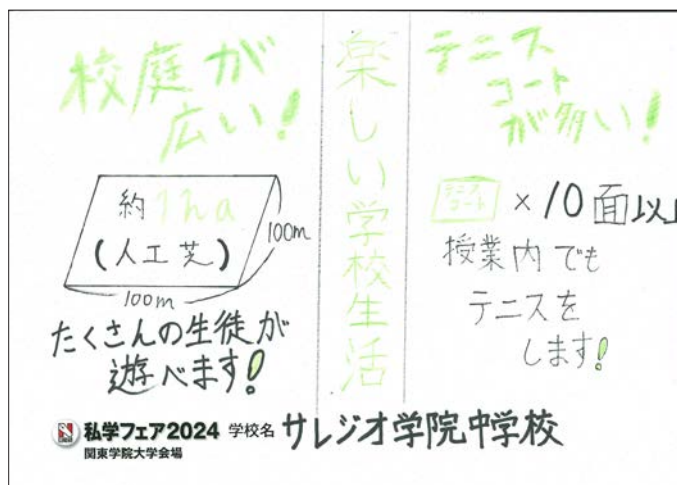 校庭が
広い!
約1ha
(人工芝)
100m
100m
たくさんの生徒が
遊べます!
楽しい学校生活
テニス
コート
が多い!
テニス
コート
×10面以上
授業内でも
テニスを
します!
私学フェア2024 学校名 サレジオ学院中学校
関東学院大学会場